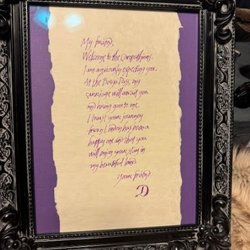 My friend,
Welcome to the Carpathians.
I am anxiously expecting you.
At the Borgo Pass, my
carriage will await you
and bring you to me.
I trust your journey
from London has been a
happy one and that you
will enjoy your stay in
my beautiful land.
Your friend,
D